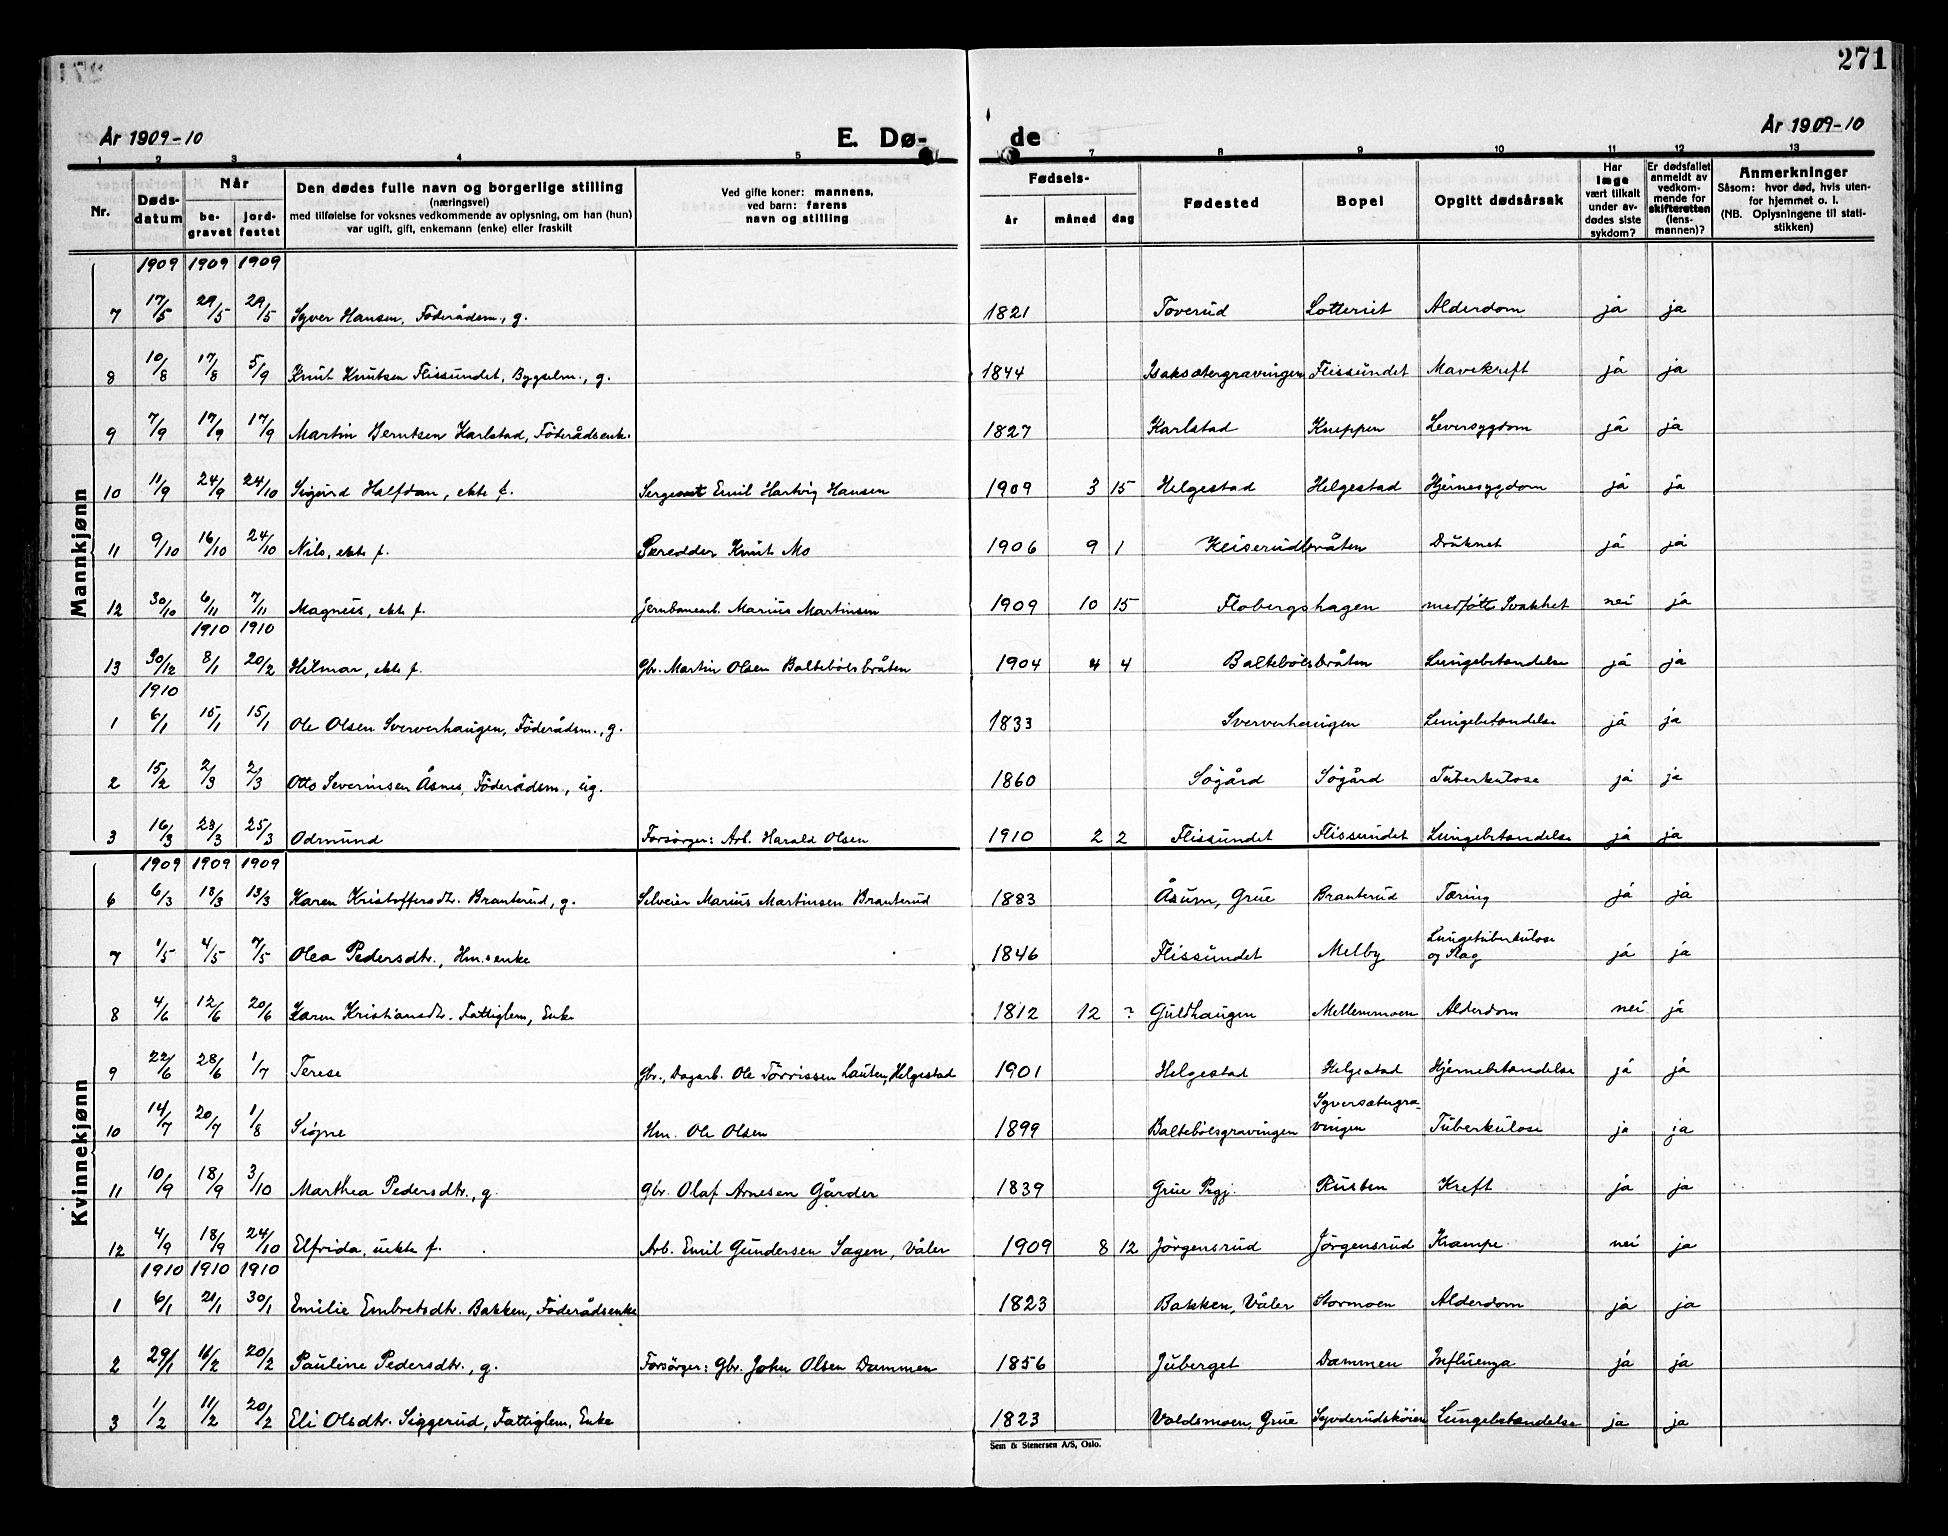 271
År 1909-10 E. Dø- de År 1909-10
1 2 3 4 5 7 8 9 10 11 12 13
Nr. Døds-datum Når be-gravet jord-festet Den dødes fulle navn og borgerlige stilling (næringsvei) med tilføielse for voksnes vedkommende av oplysning, om han (hun) var ugift, gift, enkemann (enke) eller fraskilt Ved gifte koner: mannens, ved barn: farens navn og stilling Fødsels- år måned dag Fødested Bopel Opgitt dødsårsak Har læge vært tilkalt under av-dødes siste sykdom? Er dødsfallet anmeldt av vedkom-mende for skifteretten (lens-mannen)? Anmerkninger Såsom: hvor død, hvis uten-for hjemmet o. l. (NB. Oplysningene til stati-stikken)
Mannkjønn
1909 1909 1909
7 17/5 29/5 29/5 Syver Hansen, Föderådsm., g. 1821 Toverud Lotteriet Alderdom ja ja
8 10/8 17/8 5/9 Knut Knutsen Flissundet, Bygselm., g. 1844 Isaksætergravingen Flissundet Mavekreft ja ja
9 7/9 17/9 17/9 Martin Berntsen Karlstad, Föderådsenk. 1827 Karlstad Kneppen Leversygdom ja ja
10 11/9 24/9 24/10 Sigurd Halfdan, ekte f. Sergeant Emil Hartvig Hansen 1909 3 15 Helgestad Helgestad Hjernesygdom ja ja
11 9/10 16/10 24/10 Nils, ekte f. Knut Mo 1906 9 1 Keiserudbråten Druknet ja ja
12 30/10 6/11 7/11 Magnus, ekte f. Jernbanearb. Marius Martinsen 1909 10 15 Flobergshagen medfött Svakhet nei ja
1910 1910
13 30/12 8/1 20/2 Hilmar, ekte f. Gbr. Martin Olsen Baltebölsbråten 1904 4 4 Baltebölsbråten Lungebetændelse ja ja
1910
1 6/1 15/1 15/1 Ole Olsen Sververhaugen, Föderådsm., g. 1833 Sververhaugen Lungebetændelse ja ja
2 15/2 2/3 2/3 Otto Severinsen Åsnes, Föderådsm., ug. 1860 Sögård Sögård Tuberkulose ja ja
3 16/3 23/3 25/3 Odmund Forsörger: Arb. Harald Olsen 1910 2 2 Flissundet Flissundet Lungebetændelse ja ja
Kvinnekjønn
1909 1909 1909
6 6/3 13/3 13/3 Karen Kristoffersdtr. Branterud, g. Selveier Marius Martinsen Branterud 1883 Åsum, Grue Branterud Tæring ja ja
7 1/5 4/5 7/5 Olea Pedersdtr., Hm.senke 1846 Flissundet Melby Lungetuberkulose og Slag ja ja
8 4/6 12/6 20/6 Karen Kristiansdtr. Fattiglem, Enke 1812 12 ? Guldhaugen Mellemmoen Alderdom nei ja
9 22/6 28/6 1/7 Terese Gbr., Dagarb. Ole Törrissen Lauten, Helgestad 1901 Helgestad Helgestad Hjernebetændelse ja ja
10 14/7 20/7 1/8 Signe Hm. Ole Olsen 1899 Baltebölsgravingen Syversætergra-vingen Tuberkulose ja ja
11 10/9 18/9 3/10 Marthea Pedersdtr., g. Gbr. Olaf Arnesen Gårder 1839 Grue Prgj. Rusten Kreft ja ja
12 4/9 18/9 24/10 Elfrida, uekte f. Arb. Emil Gundersen Sagen, Våler 1909 8 12 Jörgensrud Jörgensrud Krampe nei ja
1910 1910 1910
1 6/1 21/1 30/1 Emilie Embretsdtr. Bakken, Föderådsenke 1823 Bakken, Våler Stormoen Alderdom ja ja
2 29/1 16/2 20/2 Pauline Pedersdtr., g. Forsörger: Gbr. John Olsen Dammen 1856 Juberget Dammen Influenza ja ja
3 1/2 11/2 20/2 Eli Olsdtr. Siggerud, Fattiglem, Enke 1823 Voldsmoen, Grue Syvderudsköien Lungebetændelse ja ja
Sem & Stenersen A/S, Oslo.